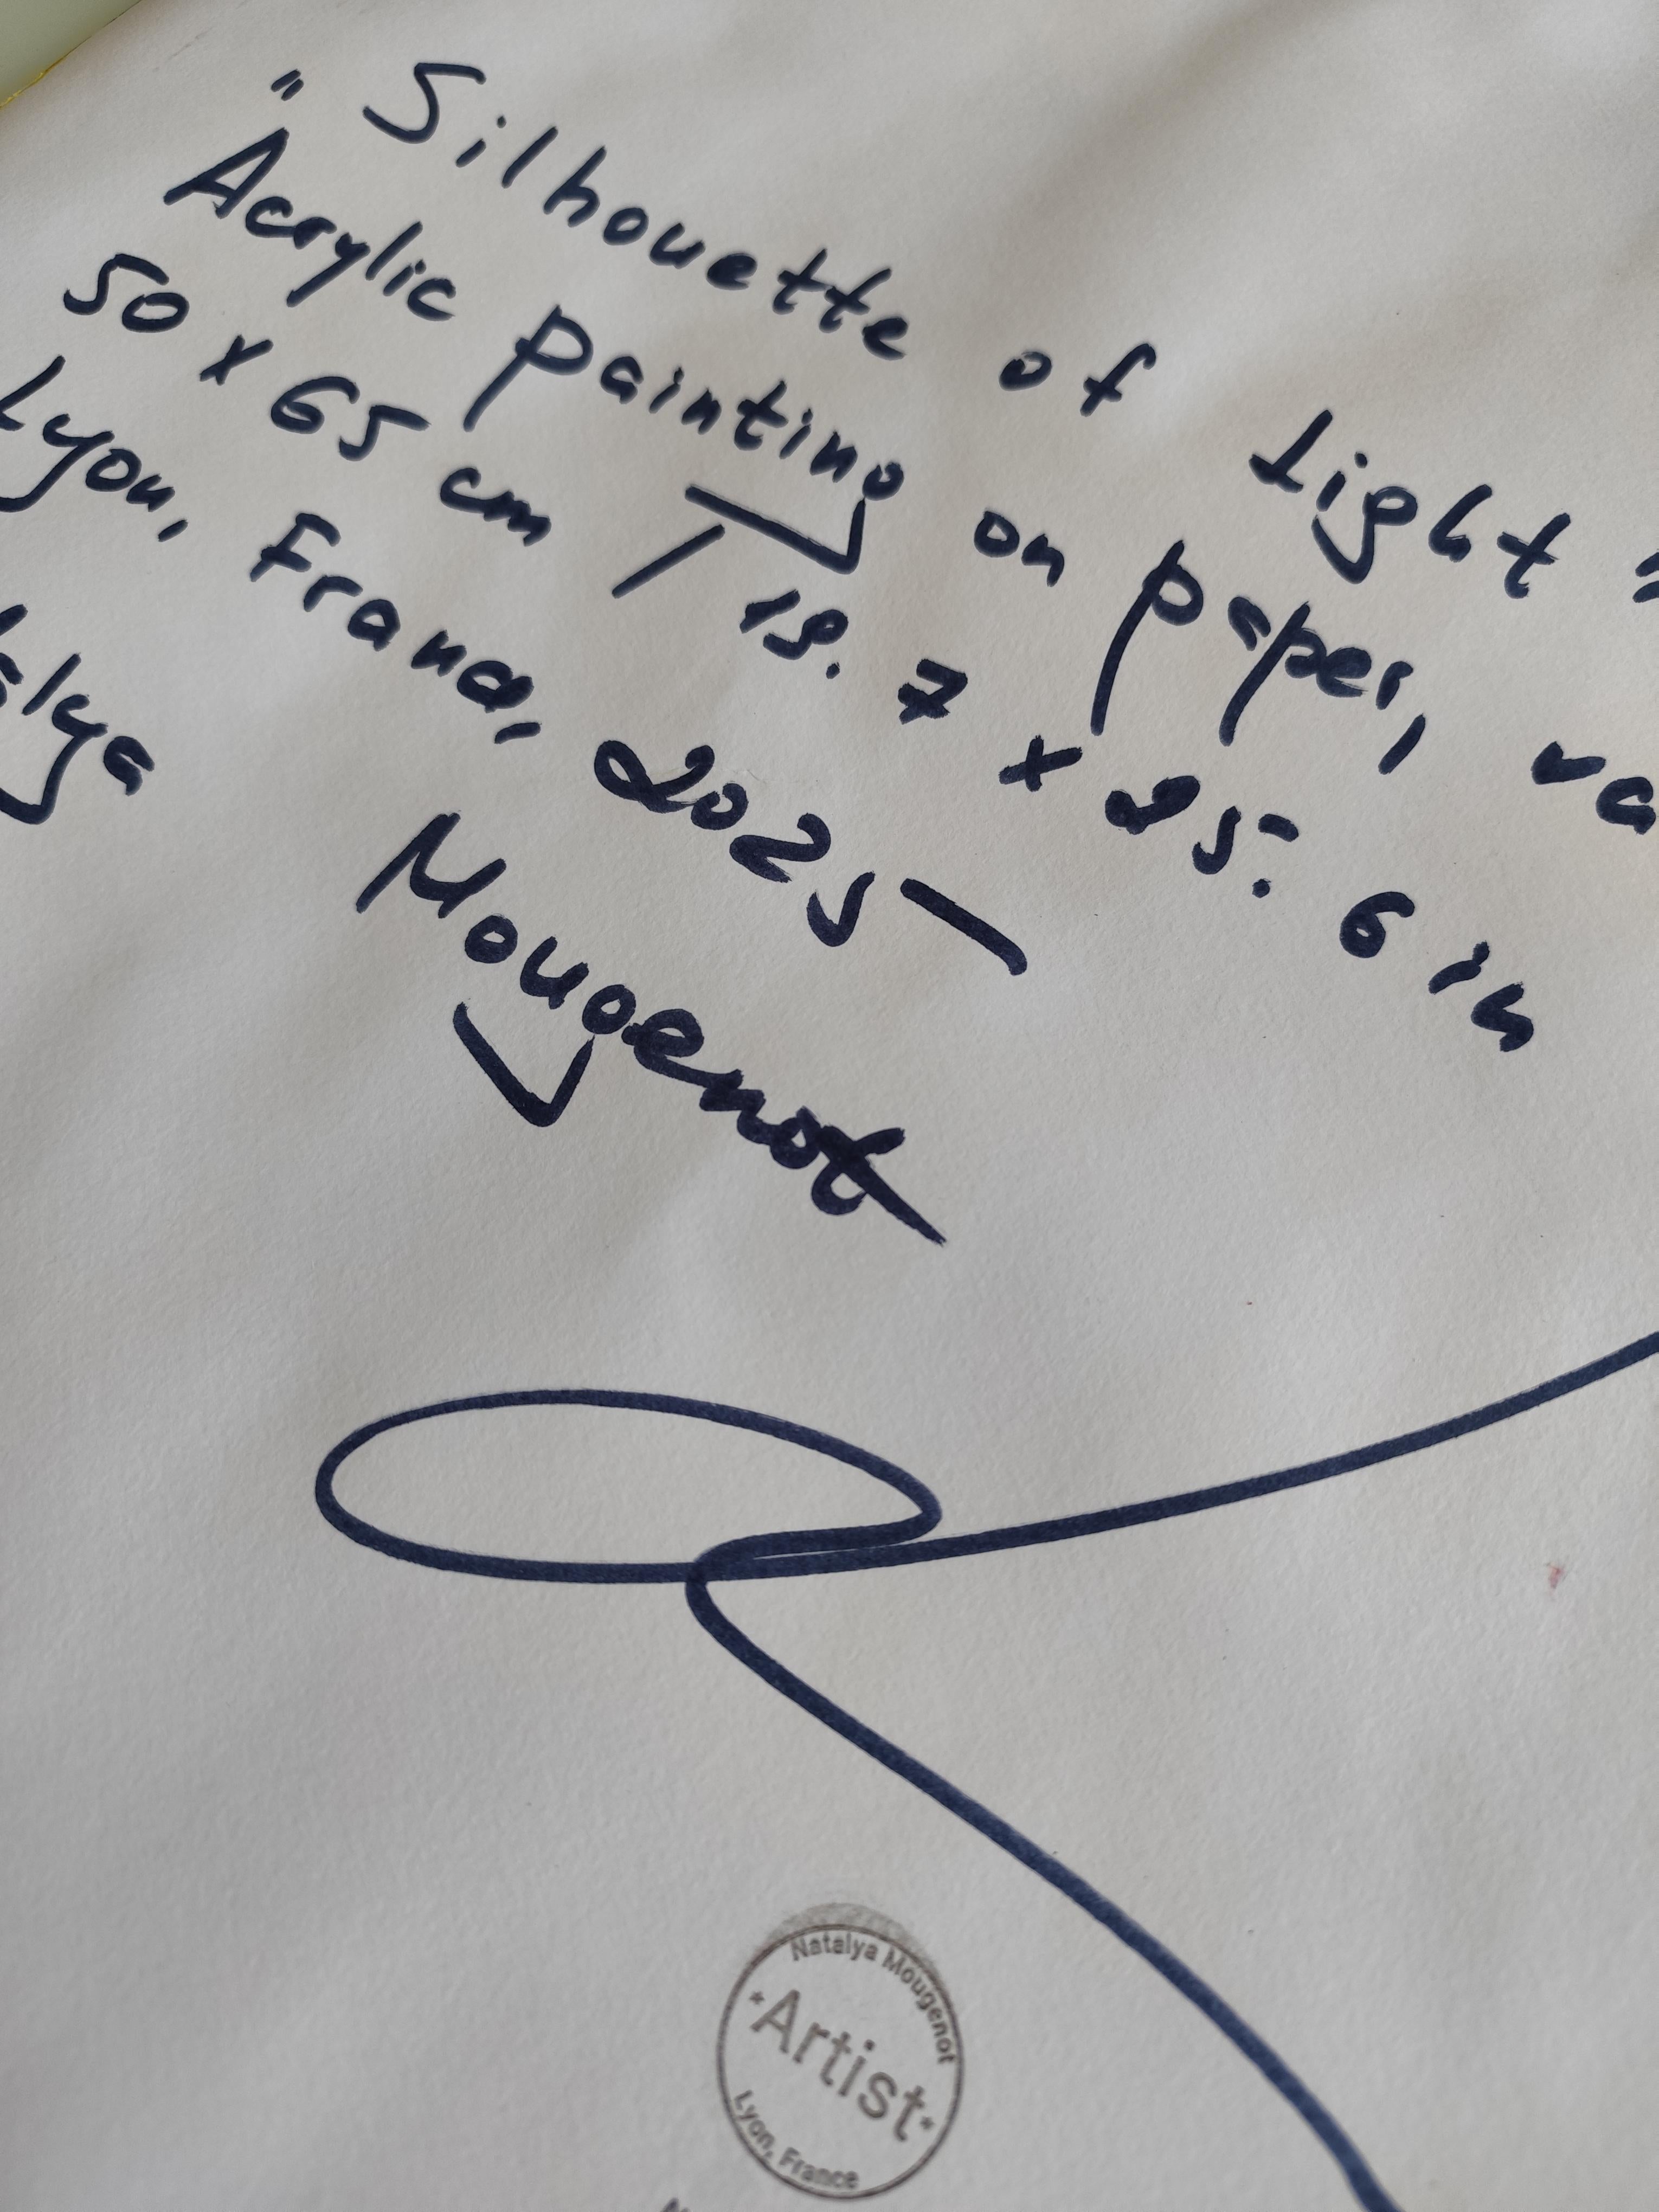 "Silhouette of Light"
Acrylic painting on paper, va
50 x 65 cm / 19.7 x 25.6 in
Lyon, France, 2025
alya Mougenot
Natalya Mougenot
*Artist*
Lyon, France